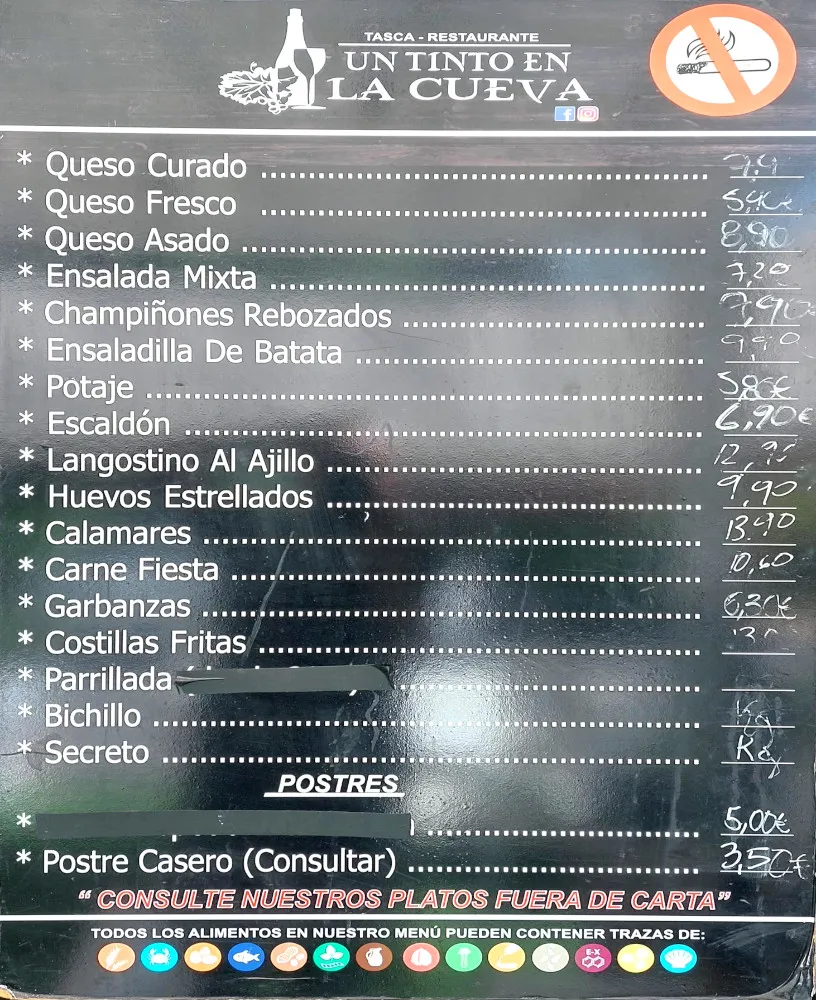 TASCA - RESTAURANTE
UN TINTO EN
LA CUEVA
* Queso Curado
* Queso Fresco
* Queso Asado 8,90
* Ensalada Mixta 7,20
* Champiñones Rebozados 7,90
* Ensaladilla De Batata
* Potaje
* Escaldón 6,90€
* Langostino Al Ajillo
* Huevos Estrellados 9,90
* Calamares 13.90
* Carne Fiesta 10,60
* Garbanzas 6,30€
* Costillas Fritas
* Parrillada
* Bichillo Kg
* Secreto Kg
POSTRES
* 5,00€
* Postre Casero (Consultar) 3,50€
“ CONSULTE NUESTROS PLATOS FUERA DE CARTA”
TODOS LOS ALIMENTOS EN NUESTRO MENÚ PUEDEN CONTENER TRAZAS DE:
E-X